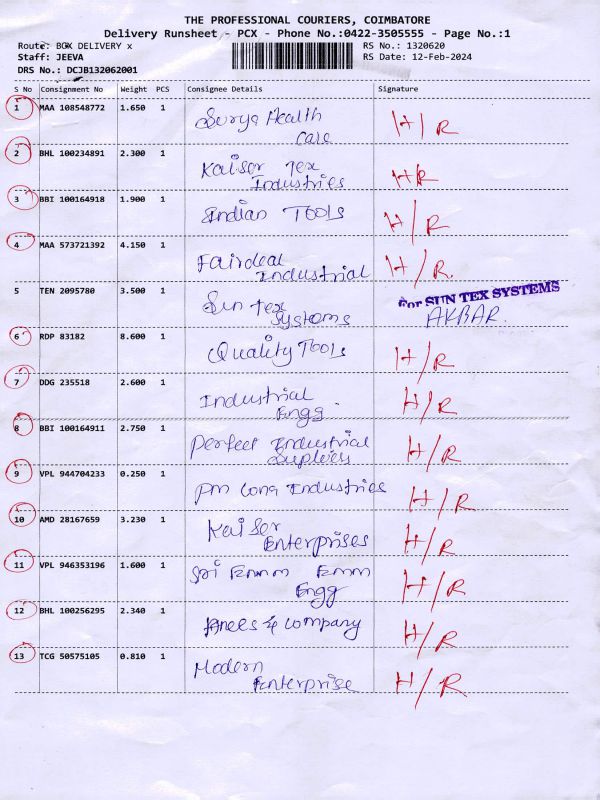 THE PROFESSIONAL COURIERS, COIMBATORE
Delivery Runsheet - PCX - Phone No.:0422-3505555 - Page No.:1
Route: BOX DELIVERY x RS No.: 1320620
Staff: JEEVA RS Date: 12-Feb-2024
DRS No.: DCJB132062001
S No Consignment No Weight PCS Consignee Details Signature
1 MAA 108548772 1.650 1 Surya Health H/R
Care
2 BHL 100234891 2.300 1 Kaiser Tex H/R
Industries
3 BBI 100164918 1.900 1 Indian Tools H/R
4 MAA 573721392 4.150 1 Fairdeal H/R.
Industrial
5 TEN 2095780 3.500 1 Sun Tex For SUN TEX SYSTEMS
Systems AKBAR.
6 RDP 83182 8.600 1 Quality Tools H/R
7 DDG 235518 2.600 1 Industrial H/R
Engg.
8 BBI 100164911 2.750 1 Perfect Industrial H/R
Supliers
9 VPL 944704233 0.250 1 PM Industries H/R
10 AMD 28167659 3.230 1 Kaiser H/R
Enterprises
11 VPL 946353196 1.600 1 Sri H/R
Engg
12 BHL 100256295 2.340 1 & Company H/R
13 TCG 50575105 0.810 1 Modern H/R
Enterprise